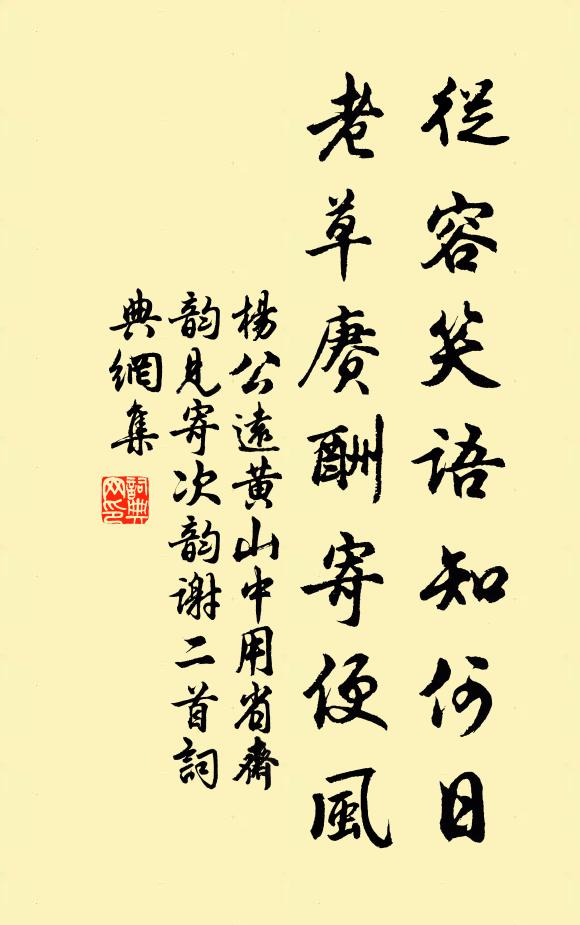 從容笑語知何日
老草賡酬寄便風
楊公遠黃山中用省齋
韵見寄次韵謝二首詞
典網集
詞典網印